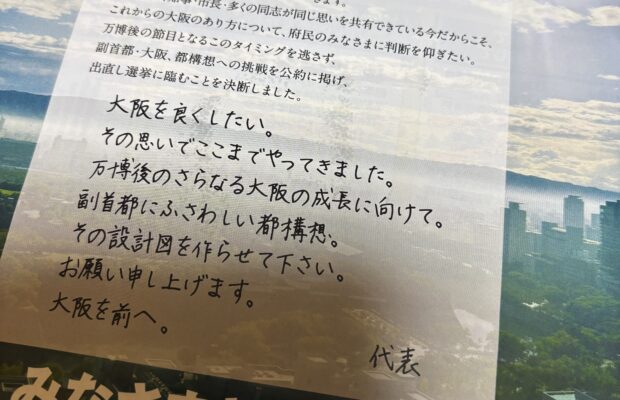 知事・市長・多くの同志が同じ思いを共有できている今だからこそ、
これからの大阪のあり方について、府民のみなさまに判断を仰ぎたい。
万博後の節目となるこのタイミングを逃さず、
副首都・大阪、都構想への挑戦を公約に掲げ、
出直し選挙に臨むことを決断しました。
大阪を良くしたい。
その思いでここまでやってきました。
万博後のさらなる大阪の成長に向けて。
副首都にふさわしい都構想。
その設計図を作らせて下さい。
お願い申し上げます。
大阪を前へ。
代表
みなさま